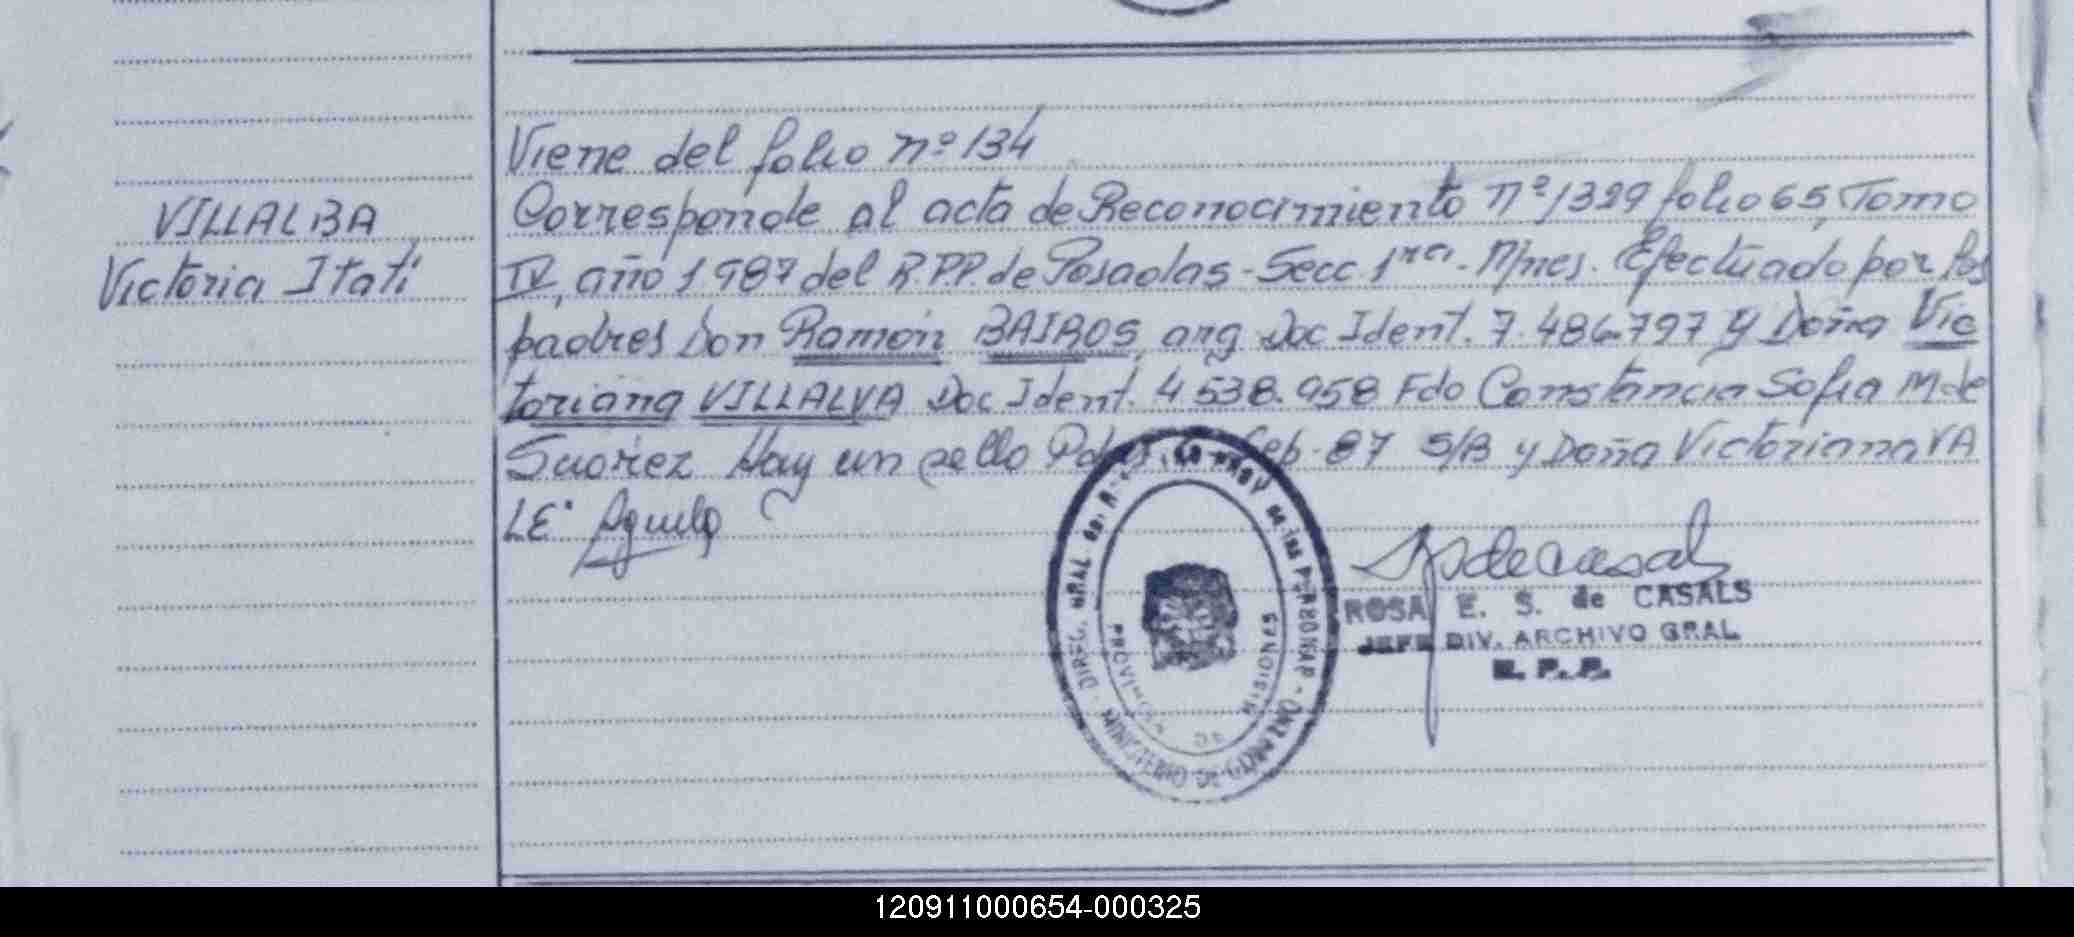 Viene del folio nº 134
VILLALBA
Victoria Itatí
Corresponde al acta de Reconocimiento nº 1329 folio 65, Tomo
IV, año 1987 del R.P.P. de Posadas - Secc 1ra. M/nes. Efectuado por los
padres Don Ramón BAIROS, arg Doc Ident. 7.486.797 y Doña Vic
toriana VILLALVA Doc Ident. 4 538.958 Fdo Constancia Sofia M de
Suárez Hay un sello Pdas. Feb-87 S/B y Doña Victoriana VA
LE.
ROSA E. S. de CASALS
JEFE DIV. ARCHIVO GRAL
R. P. P.
PROVINCIA DE MISIONES
MINISTERIO DE GOBIERNO
120911000654-000325